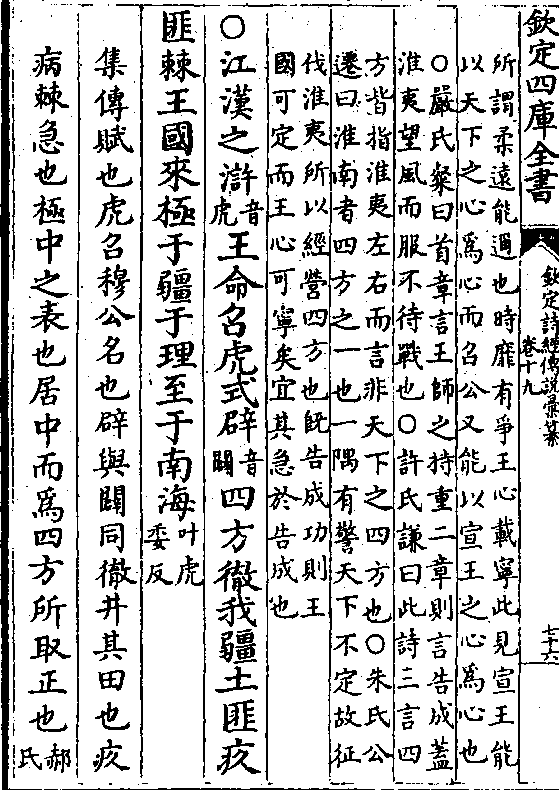 欽定四庫全書
欽定詩經傳說彙纂
卷十九
七十六
所謂柔遠能邇也時靡有爭王心載寧此見宣王能
以天下之心為心而召公又能以宣王之心為心也
○嚴氏粲曰首章言王師之持重二章則言告成蓋
淮夷望風而服不待戰也○許氏謙曰此詩三言四
方皆指淮夷左右而言非天下之四方也○朱氏公
遷曰淮南者四方之一也一隅有警天下不定故征
伐淮夷所以經營四方也旣告成功則王
國可定而王心可寧矣宜其急於告成也
○江漢之滸音虎王命召虎式辟音闢四方徹我疆土匪疚
匪棘王國來極于疆于理至于南海叶虎委反
集傳賦也虎召穆公名也辟與闢同徹井其田也疚
病棘急也極中之表也居中而為四方所取正也郝氏